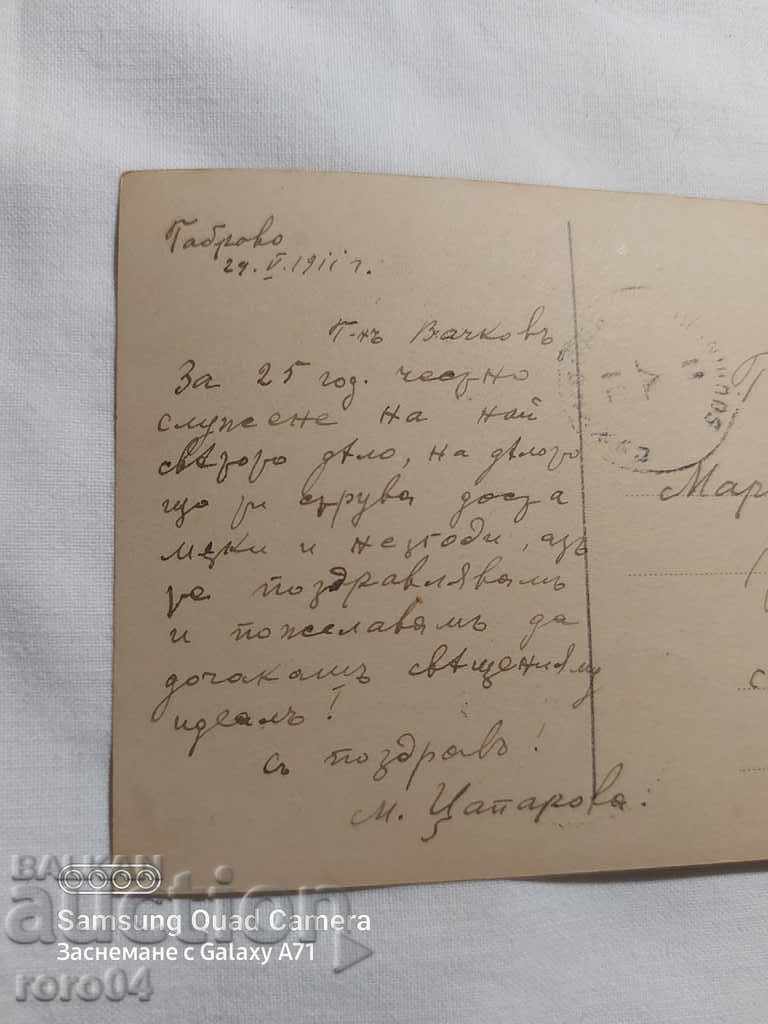 Габрово
29.V.1911 г.
Г-нъ Вачковъ
За 25 год. честно
служене на най
свѣтото дѣло, на дѣлото
що ти струва доста
мѫки и незгоди, азъ
те поздравлявамъ
и пожелавамъ да
дочакашъ свѣщенния му
идеалъ!
съ поздравъ!
М. Цапарова.
Мар
BALKAN
auction
Samsung Quad Camera
Заснемане с Galaxy A71
roro04